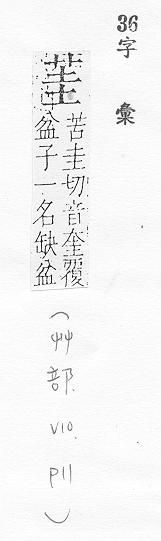 36
字彙
茥
苦圭切音奎覆
盆子一名缺盆
(艸部 V10. P11)